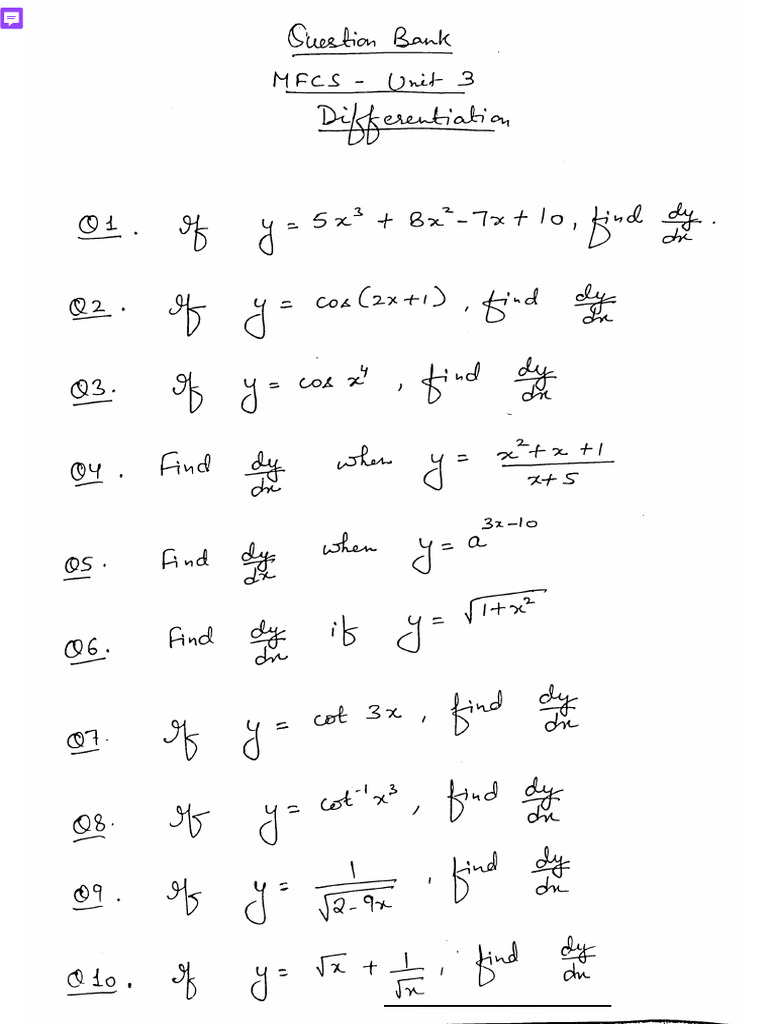 Question Bank
MFCS - Unit 3
Differentiation
Q1. If y = 5x³ + 8x² - 7x + 10, find dy/dx.
Q2. If y = cos(2x+1), find dy/dx
Q3. If y = cos x⁴, find dy/dx
Q4. Find dy/dx when y = (x² + x + 1)/(x + 5)
Q5. Find dy/dx when y = a^(3x-10)
Q6. Find dy/dx if y = √(1+x²)
Q7. If y = cot 3x, find dy/dx
Q8. If y = cot⁻¹ x³, find dy/dx
Q9. If y = 1/√(2-9x), find dy/dx
Q10. If y = √x + 1/√x, find dy/dx